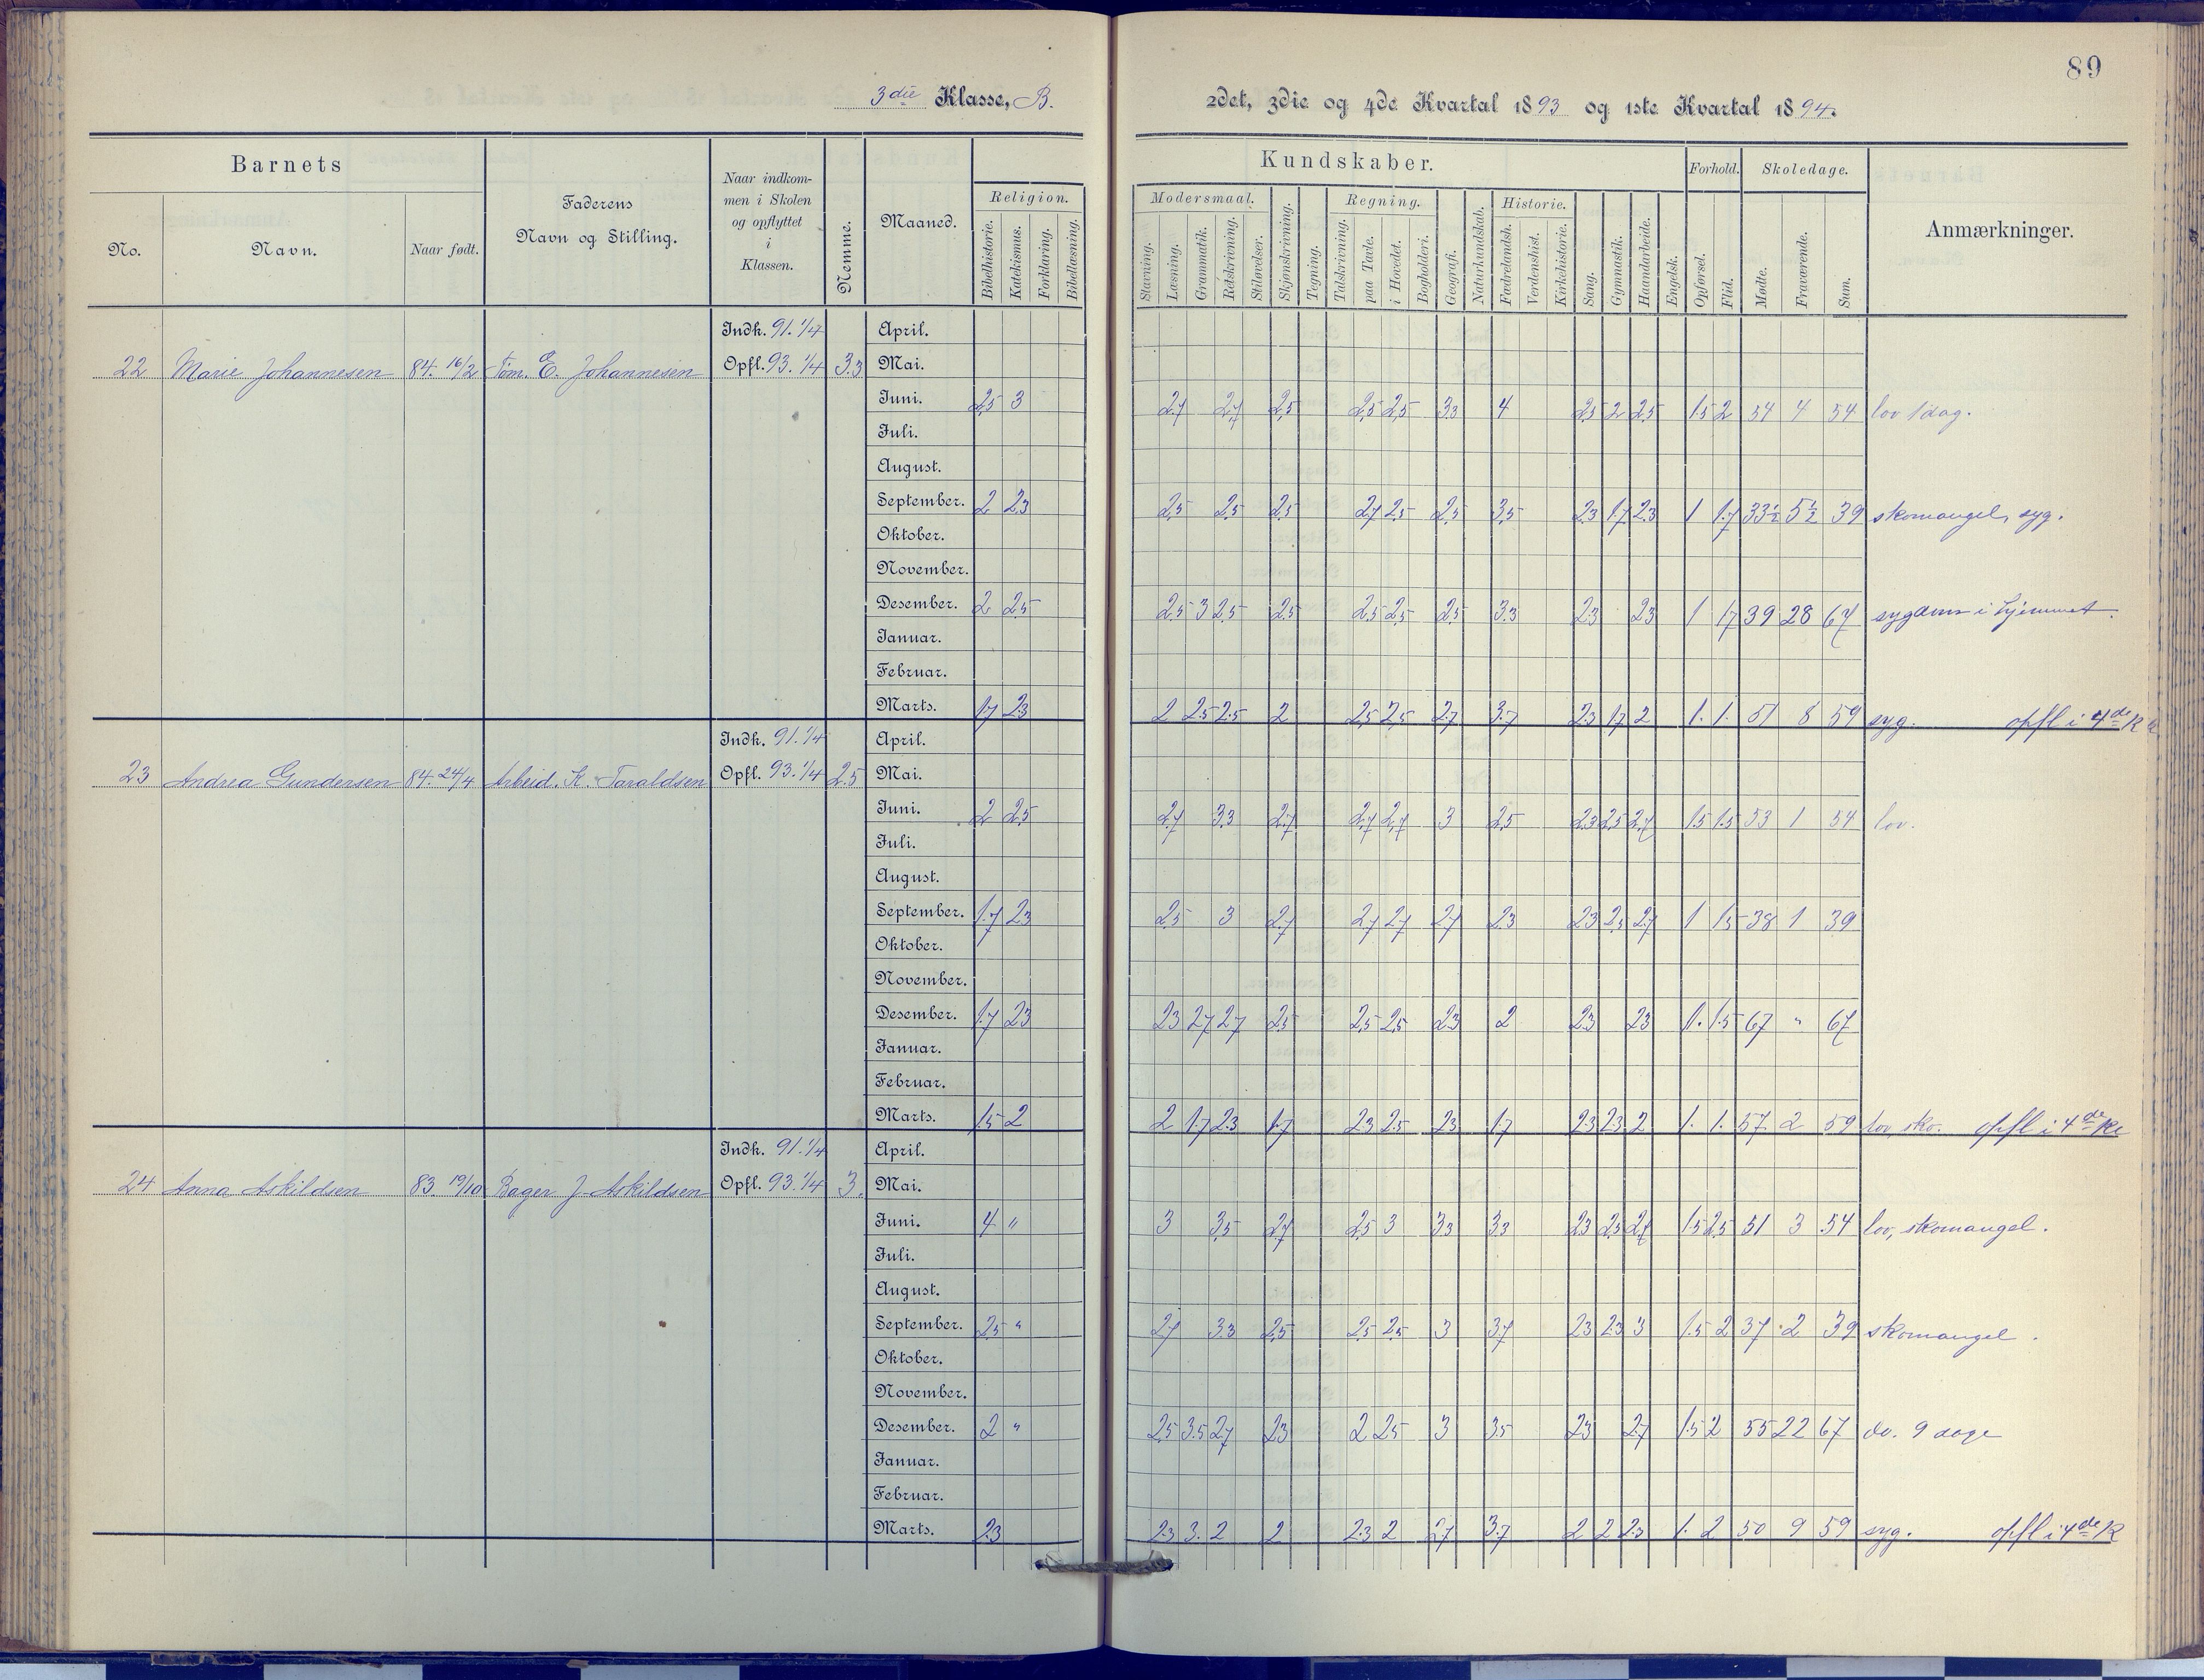 89
3die Klasse, B.
2det, 3die og 4de Kvartal 1893 og 1ste Kvartal 1894.
Barnets
No.
Navn.
Naar født.
Faderens
Navn og Stilling.
Naar indkom-
men i Skolen
og opflyttet
i
Klassen.
Nemme.
Maaned.
Religion.
Bibelhistorie.
Katekismus.
Forklaring.
Bibellæsning.
Kundskaber.
Modersmaal.
Stavning.
Læsning.
Grammatik.
Retskrivning.
Stiløvelser.
Skjønskrivning.
Tegning.
Regning.
Talskrivning.
paa Tavle.
i Hovedet.
Bogholderi.
Geografi.
Naturkundskab.
Historie.
Fædrelandsh.
Verdenshist.
Kirkehistorie.
Sang.
Gymnastik.
Haandarbeide.
Engelsk.
Forhold.
Opførsel.
Flid.
Skoledage.
Mødte.
Fraværende.
Sum.
Anmærkninger.
Indk. 91. 1/4 April.
22 Marie Johannesen 84. 16/2 Tøm. E. Johannesen Opfl. 93. 1/4 3.3 Mai.
Juni. 2.5 3 2.7 2.7 2.5 2.5 2.5 3.3 4 2.5 2 2.5 1.5 2 54 4 54 lov 1 dag.
Juli.
August.
September. 2 2.3 2.5 2.5 2.5 2.7 2.5 2.5 3.5 2.3 1.7 2.3 1 1.7 33½ 5½ 39 skomangel, syg.
Oktober.
November.
Desember. 2 2.5 2.5 3 2.5 2.5 2.5 2.5 2.5 3.3 2.3 2.3 1 1.7 39 28 67 sygdom i hjemmet.
Januar.
Februar.
Marts. 1.7 2.3 2 2.5 2.5 2 2.5 2.5 2.7 3.7 2.3 1.7 2 1. 1. 51 8 59 syg. opfl i 4de K
Indk. 91. 1/4 April.
23 Andrea Gundersen 84. 24/4 Arbeid. K. Taraldsen Opfl. 93. 1/4 2.5 Mai.
Juni. 2 2.5 2.7 3.3 2.7 2.7 2.7 3 2.5 2.3 2.5 2.7 1.5 1.5 53 1 54 lov.
Juli.
August.
September. 1.7 2.3 2.5 3 2.7 2.7 2.7 2.7 2.3 2.3 2.5 2.7 1 1.5 38 1 39
Oktober.
November.
Desember. 1.7 2.3 2.3 2.7 2.7 2.5 2.5 2.5 2.3 2 2.3 2.3 1. 1.5 67 " 67
Januar.
Februar.
Marts. 1.5 2 2 1.7 2.3 1.7 2.3 2.5 2.3 1.7 2.3 2.3 2 1. 1. 57 2 59 lov, sko. opfl i 4de Kl
Indk. 91. 1/4 April.
24 Anna Askildsen 83 19/10 Bager J. Askildsen Opfl. 93. 1/4 3. Mai.
Juni. 4 " 3 3.5 2.7 2.5 3 3.3 3.3 2.3 2.5 2.7 1.5 2.5 51 3 54 lov, skomangel.
Juli.
August.
September. 2.5 " 2.7 3.3 2.5 2.5 2.5 3 3.7 2.3 2.3 3 1.5 2 37 2 39 skomangel.
Oktober.
November.
Desember. 2 " 2.5 3.5 2.7 2.3 2 2.5 3 3.5 2.3 2.7 1.5 2 55 22 67 do. 9 dage
Januar.
Februar.
Marts. 2.3 2.3 3. 2 2 2.3 2 2.7 3.7 2 2 2.3 1. 2 50 9 59 syg. opfl i 4de K